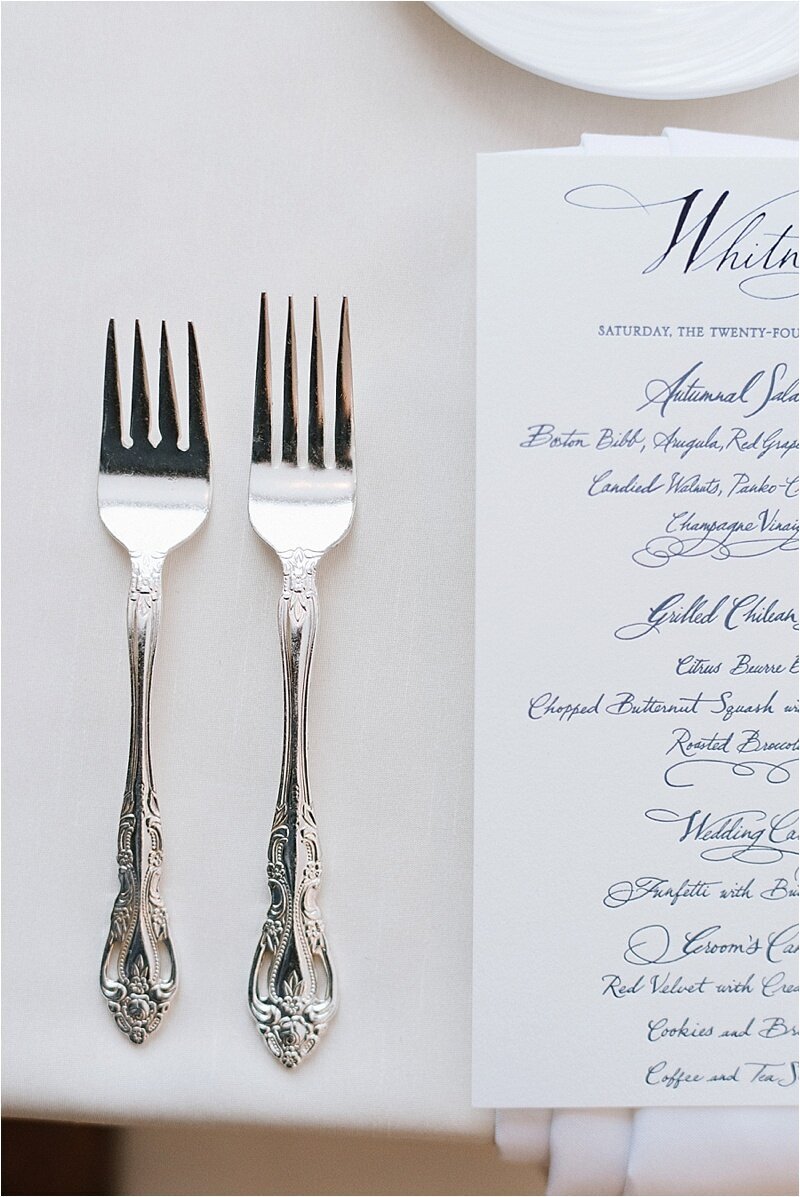 Whitn
SATURDAY, THE TWENTY-FOU
Autumnal Sala
Boston Bibb, Arugula, Red Grap
Candied Walnuts, Panko-C
Champagne Vinaig
Grilled Chilean
Citrus Beurre B
Chopped Butternut Squash wi
Roasted Broccol
Wedding Ca
Funfetti with Bu
Groom's Ca
Red Velvet with Crea
Cookies and Br
Coffee and Tea S